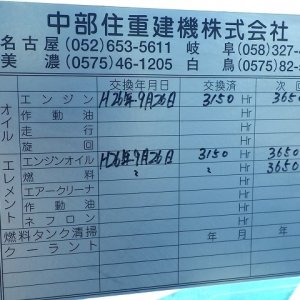 中部住重建機株式会社
名古屋(052)653-5611 岐阜(058)327-
美濃(0575)46-1205 白鳥(0575)82-
交換年月日 交換済 次回
オイル
エンジン H26年9月26日 3150 Hr 3650
作動油 Hr
走行 Hr
旋回 Hr
エレメント
エンジンオイル H26年9月26日 3150 Hr 3650
燃料 〃 〃 Hr 3650
エアークリーナ Hr
作動油 Hr
ネフロン Hr
燃料タンク清掃 年 月 年
クーラント 年 月 年